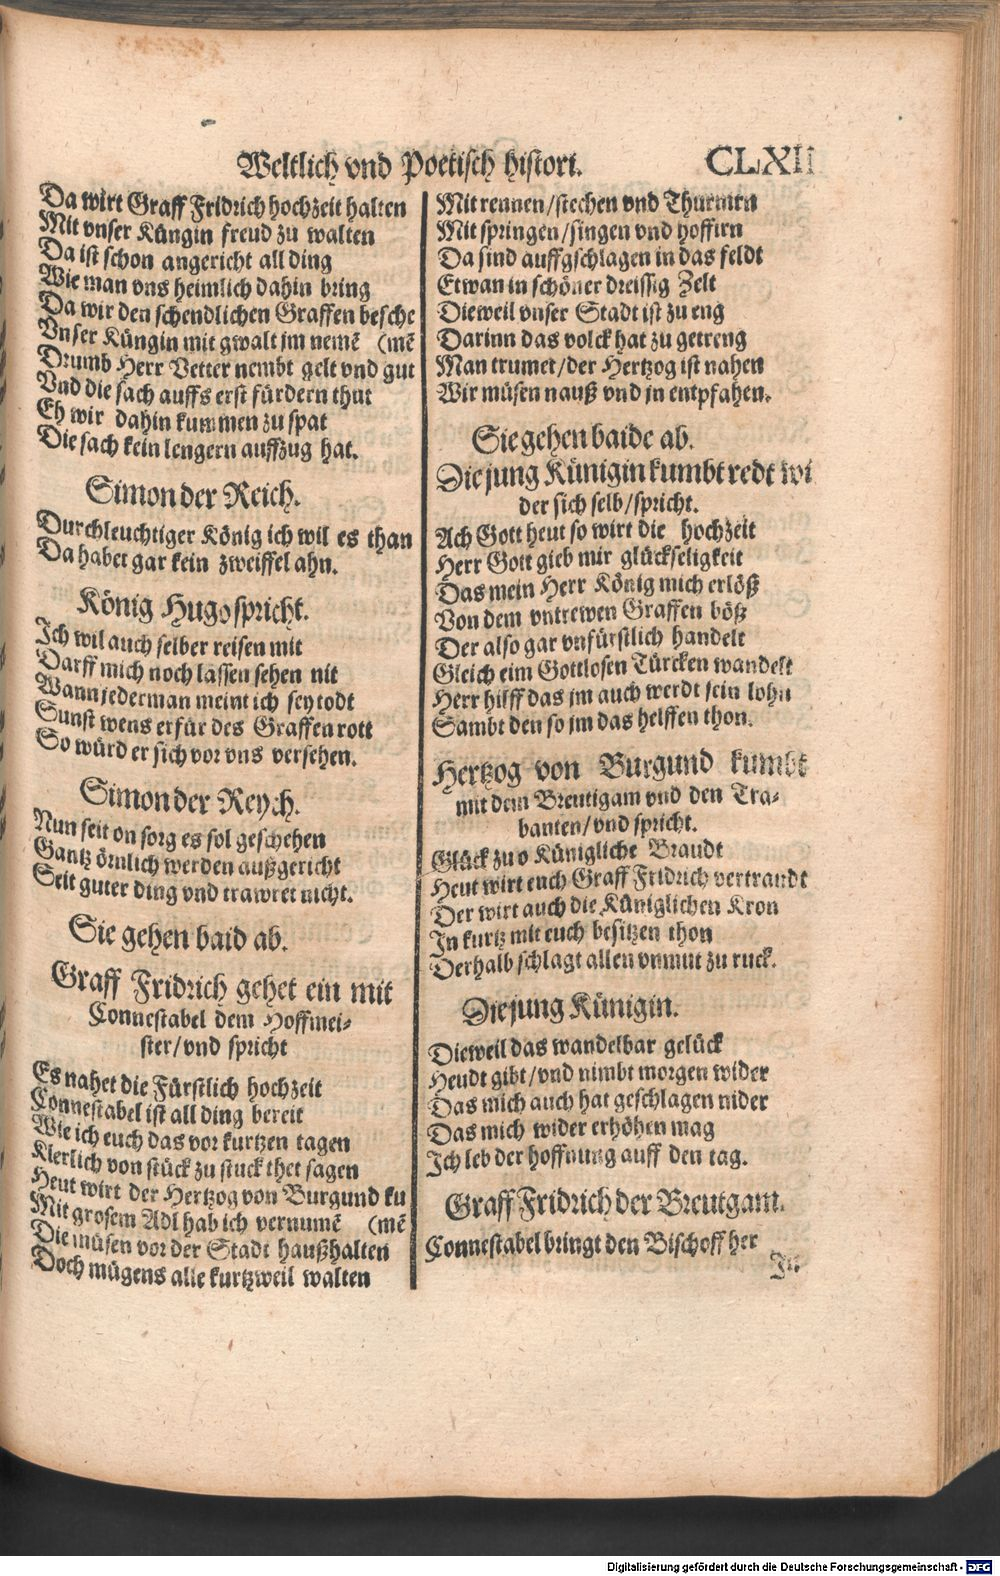 Weltlich vnd Poetisch histori. CLXII
Da wirt Graff Fridrich hochzeit halten
Mit vnser Küngin freud zu walten
Da ist schon angericht all ding
Wie man vns heimlich dahin bring
Da wir den schendlichen Graffen besche
Vnser Küngin mit gwalt jm nemē (mē
Drumb Herr Vetter nembt gelt vnd gut
Vnd die sach auffs erst fürdern thut
Eh wir dahin kummen zu spat
Die sach kein lengern auffzug hat.
Simon der Reich.
Durchleuchtiger König ich wil es than
Da habet gar kein zweiffel ahn.
König Hugo spricht.
Ich wil auch selber reisen mit
Darff mich noch lassen sehen nit
Wann jederman meint ich sey todt
Sunst wens erfür des Graffen rott
So würd er sich vor vns versehen.
Simon der Reych.
Nun seit on sorg es sol geschehen
Gantz örnlich werden außgericht
Seit guter ding vnd trawret nicht.
Sie gehen baid ab.
Graff Fridrich gehet ein mit
Connestabel dem Hoffmei-
ster/vnd spricht
Es nahet die Fürstlich hochzeit
Connestabel ist all ding bereit
Wie ich euch das vor kurtzen tagen
Klerlich von stück zu stuck thet sagen
Heut wirt der Hertzog von Burgund ku
Mit grosem Adl hab ich vernumē (mē
Die müsen vor der Stadt haußhalten
Doch mügens alle kurtzweil walten
Mit rennen/stechen vnd Thurnirn
Mit springen/singen vnd hoffirn
Da sind auffgschlagen in das feldt
Etwan in schöner dreissig Zelt
Dieweil vnser Stadt ist zu eng
Darinn das volck hat zu getreng
Man trumet/der Hertzog ist nahen
Wir müsen nauß vnd jn entpfahen.
Sie gehen baide ab.
Die jung Künigin kumbt redt wi
der sich selb/spricht.
Ach Gott heut so wirt die hochzeit
Herr Gott gieb mir glückseligkeit
Das mein Herr König mich erlöß
Von dem vntrewen Graffen böß
Der also gar vnfürstlich handelt
Gleich eim Gottlosen Türcken wandelt
Herr hilff das jm auch werdt sein lohn
Sambt den so jm das helffen thon.
Hertzog von Burgund kumbt
mit dem Breutigam vnd den Tra-
banten/vnd spricht.
Glück zu o Künigliche Braudt
Heut wirt euch Graff Fridrich vertraudt
Der wirt auch die Küniglichen Kron
In kurtz mit euch besitzen thon
Derhalb schlagt allen vnmut zu ruck.
Die jung Künigin.
Dieweil das wandelbar gelück
Heudt gibt/vnd nimbt morgen wider
Das mich auch hat geschlagen nider
Das mich wider erhöhen mag
Ich leb der hoffnung auff den tag.
Graff Fridrich der Breutgam.
Connestabel bringt den Bischoff her
In
Digitalisierung gefördert durch die Deutsche Forschungsgemeinschaft - DFG